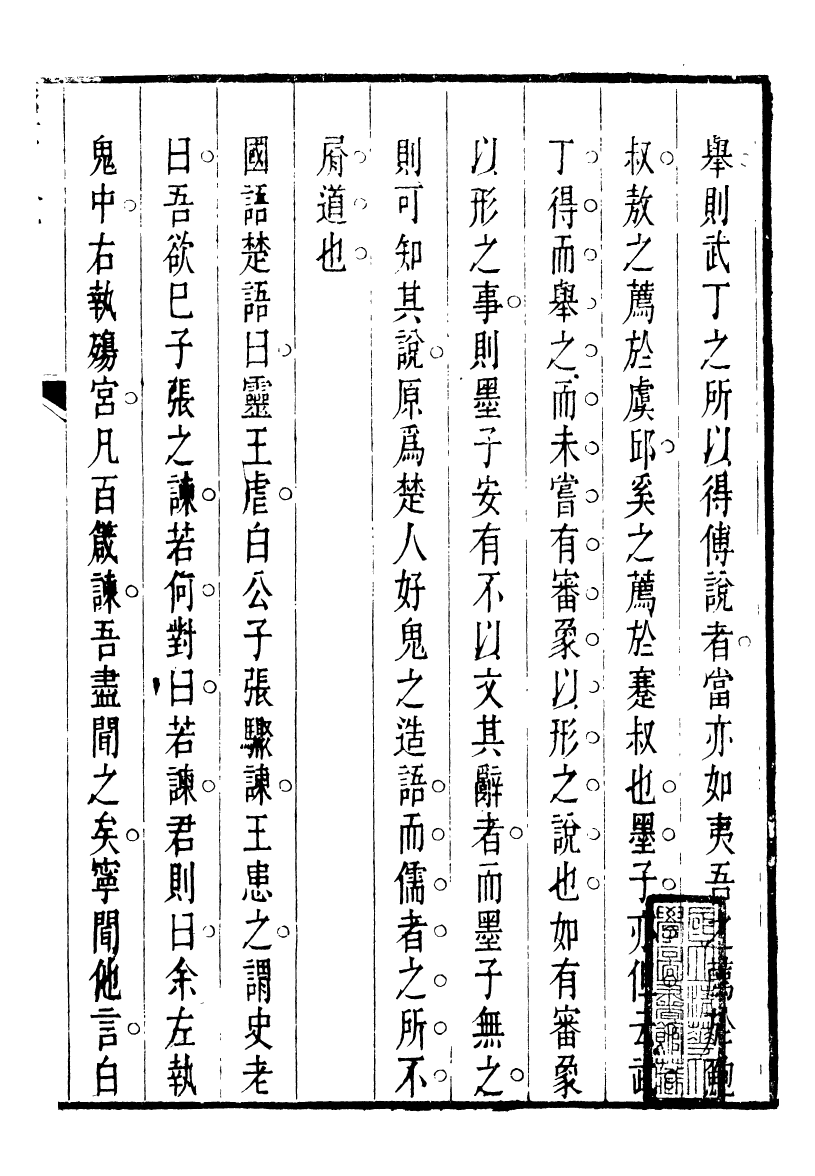 舉則武丁之所以得傅說者當亦如夷吾之薦於鮑
叔敖之薦於虞邱奚之薦於蹇叔也墨子亦但云武
丁得而舉之而未嘗有審象以形之說也如有審象
以形之事則墨子安有不以文其辭者而墨子無之
則可知其說原爲楚人好鬼之造語而儒者之所不
屑道也
國語楚語曰靈王虐白公子張驟諫王患之謂史老
曰吾欲巳子張之諫若何對曰若諫君則曰余左執
鬼中右執殤宮凡百箴諫吾盡聞之矣寧聞他言白